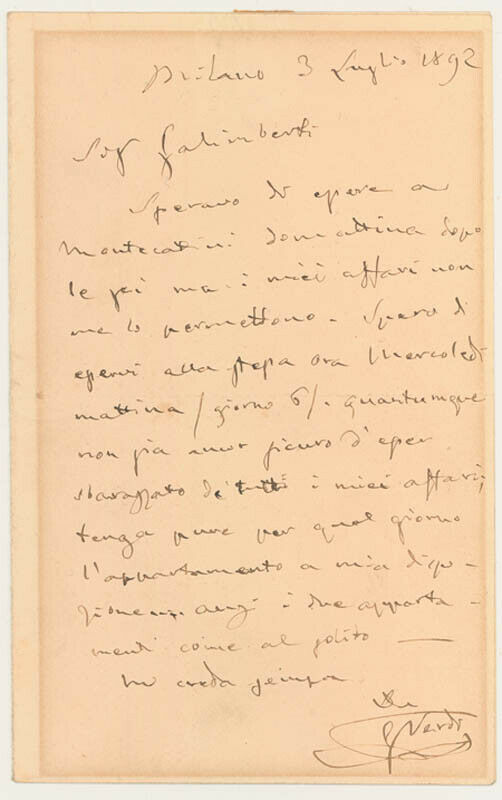 Milano 3 Luglio 1892
Sigr Galimberti
Speravo di essere a
Montecatini domattina dopo
le sei ma i miei affari non
me lo permettono. Spero di
esservi alla stessa ora Mercoledì
mattina / giorno 6/. quantunque
non sia ancor sicuro d'esser
sbarazzato di tutti i miei affari,
tenga pure per quel giorno
l'appartamento a mia dispo-
sizione, anzi i due apparta-
menti come al solito —
Mi creda sempre
G Verdi